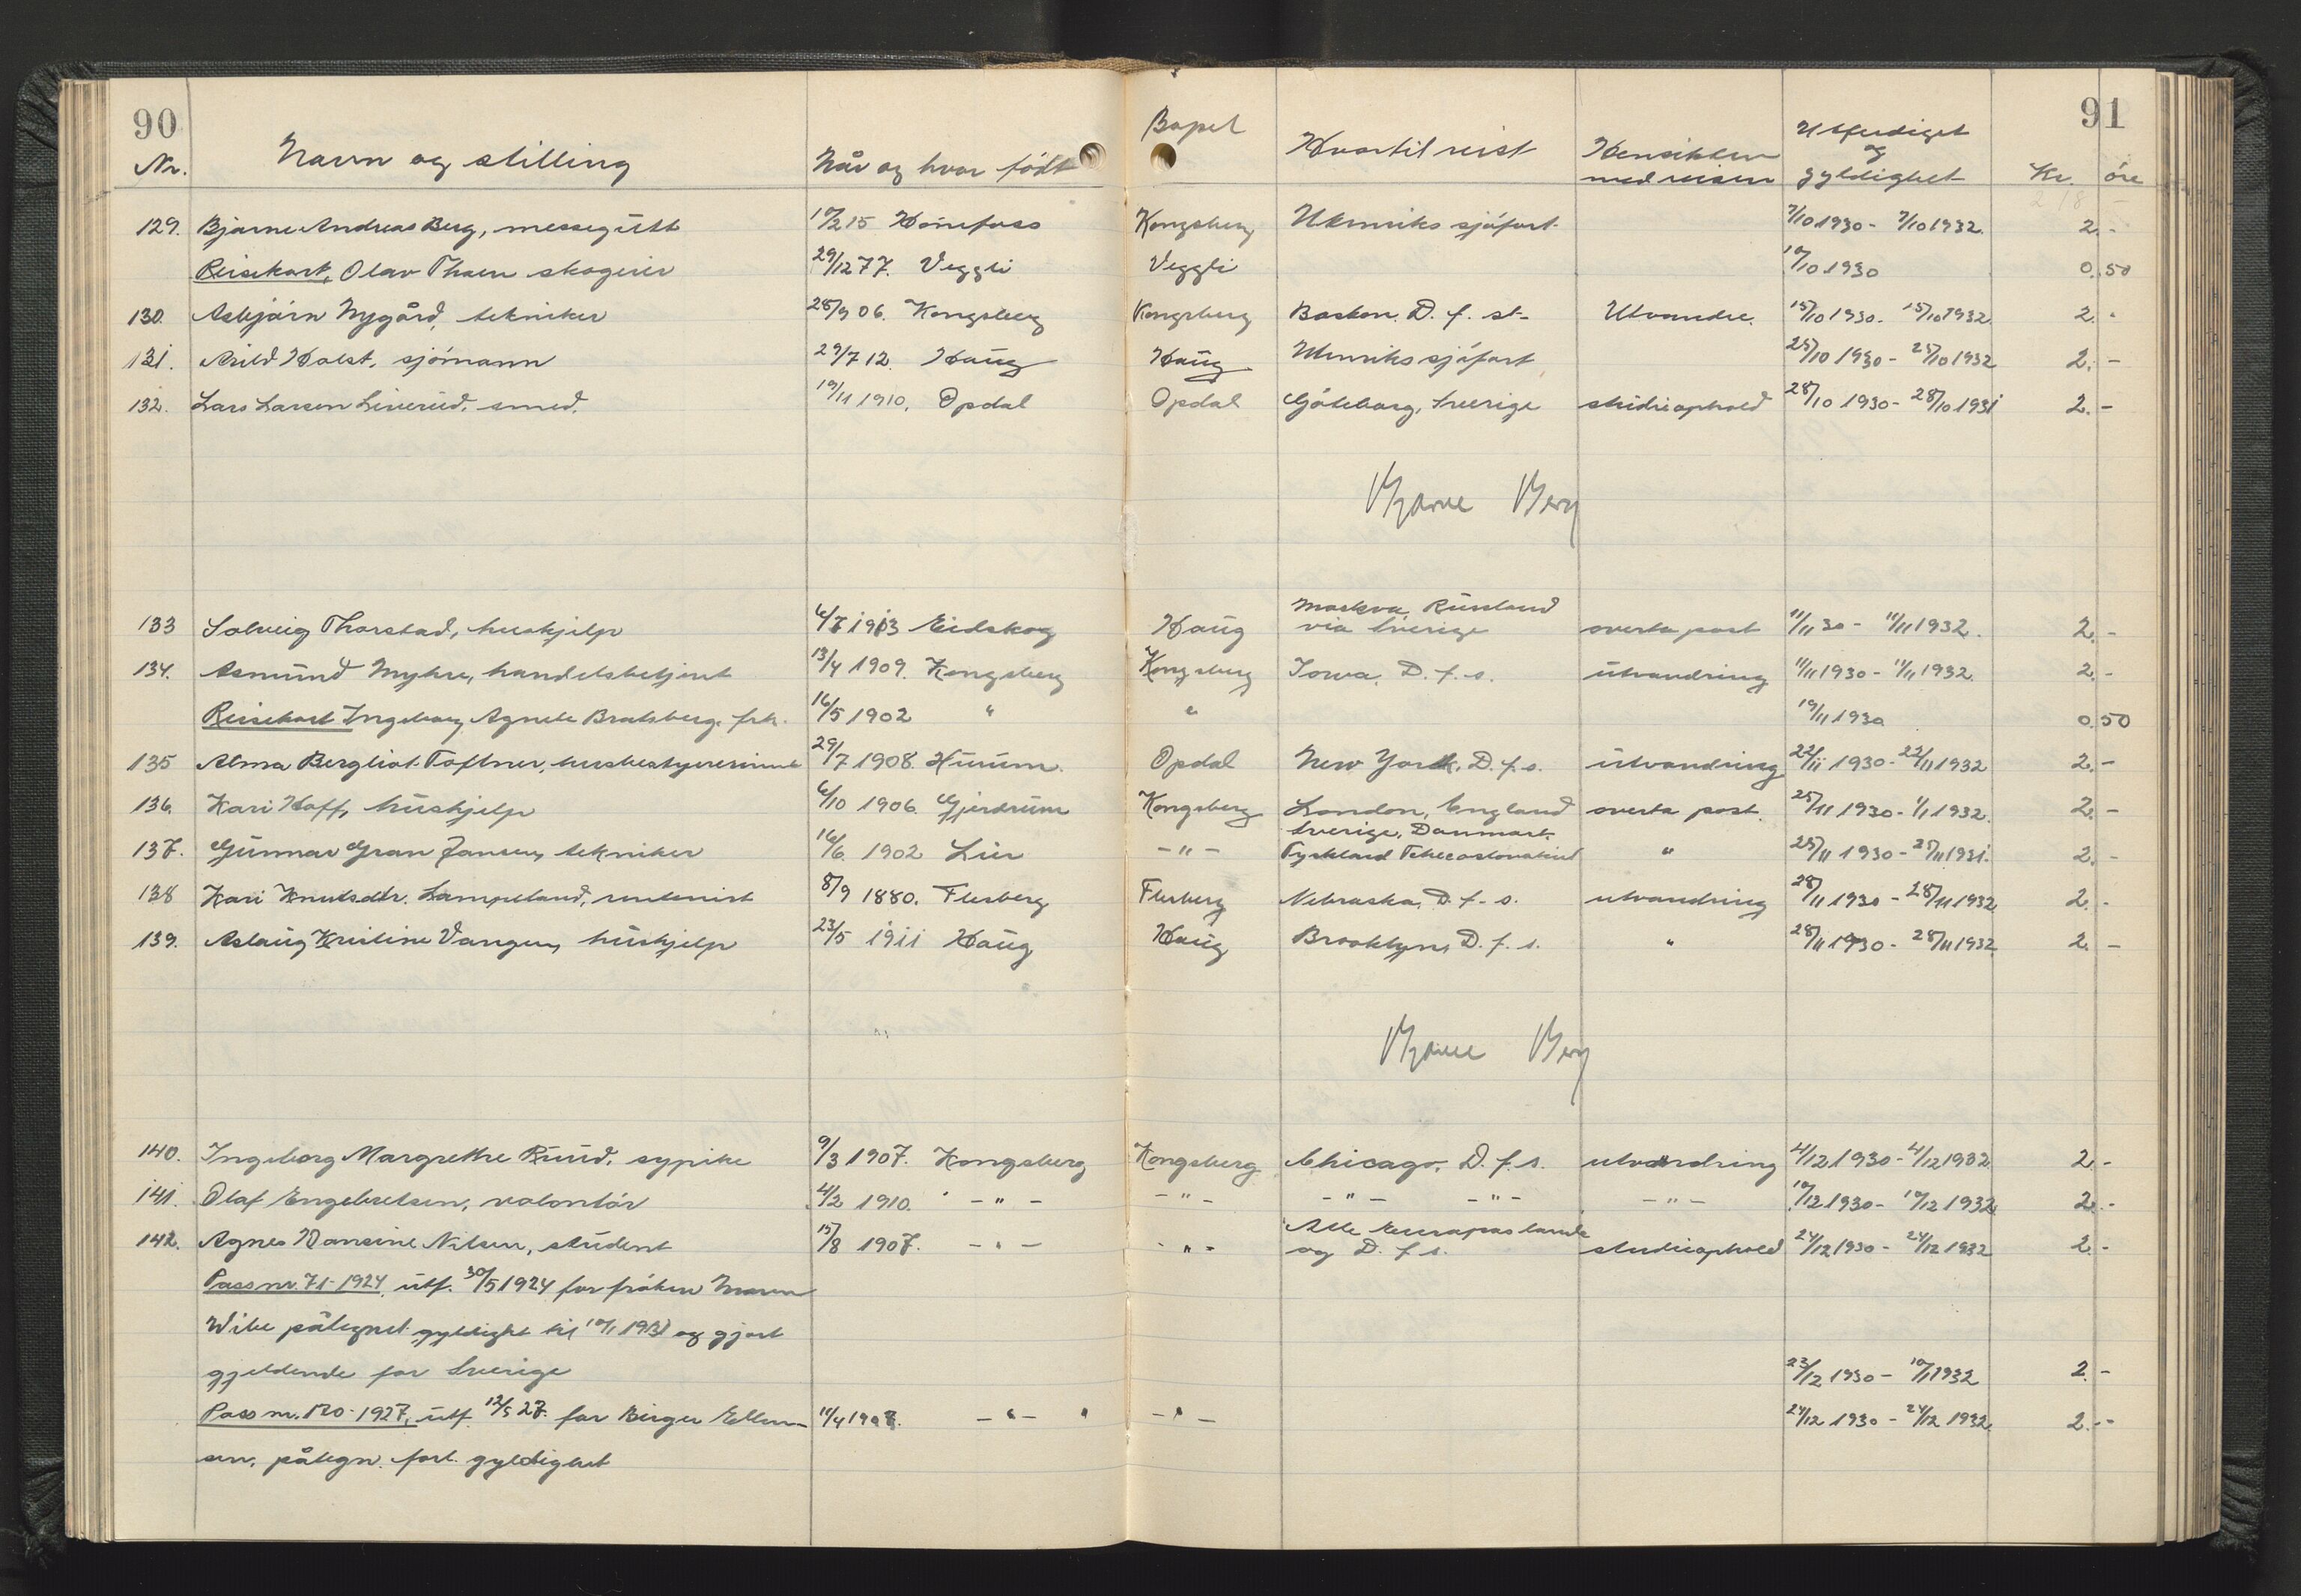 90
91
Nr. Navn og stilling Når og hvor født Bopel Hvortil reist Hensikten med reisen Utferdiget og gyldighet Kr. öre
129. Bjarne Andreas Berg, messegutt 10/2 15 Hönefoss Kongsberg Utenriks sjöfart 7/10 1930 - 7/10 1932. 2. -
Reisekort, Olav Thoen skogeier 29/12 77. Veggli Veggli 10/10 1930 0. 50
130. Asbjörn Nygård, tekniker 28/9 06. Kongsberg Kongsberg Boston. D. f. st- Utvandre. 15/10 1930 - 15/10 1932. 2. -
131. Arild Holst, sjömann 29/7 12. Haug Haug Utenriks sjöfart 25/10 1930 - 25/10 1932 2. -
132. Lars Larsen Liverud, smed. 19/11 1910, Opdal Opdal Göteborg, Sverige studieophold 28/10 1930 - 28/10 1931 2. -
Bjarne Berg
133 Solveig Thorstad, huskjelp 6/7 1913 Eidskog Haug Moskva, Russland via Sverige overta post 11/11 30 - 11/11 1932. 2. -
134. Asmund Myhre, handelsbetjent 13/4 1909. Kongsberg Kongsberg Iowa, D. f. s. utvandring 11/11 1930 - 11/11 1932. 2. -
Reisekort Ingeborg Agnete Bratsberg, frk. 16/5 1902 " " 19/11 1930 0. 50
135 Alma Bergliot Toftner, husbestyrerinne 29/7 1908. Hurum. Opdal New York, D. f. s. utvandring 22/11 1930 - 22/11 1932 2. -
136. Kari Hoff, huskjelp 6/10 1906. Gjerdrum Kongsberg London, England overta post. 25/11 1930 - 1/1 1932. 2. -
137. Gunnar Gran Jansen, tekniker 16/6. 1902 Lier - " - Sverige, Danmark Tyskland Tchecoslovakiet " 25/11 1930 - 25/11 1931. 2. -
138 Kari Knutsdtr. Lampeland, rentenist 8/9 1880. Flesberg Flesberg Nebraska, D. f. s. utvandring 28/11 1930 - 28/11 1932 2. -
139. Aslaug Kristine Vangen, huskjelp 23/5 1911 Haug Haug Brooklyn, D. f. s. " 28/11 1930 - 28/11 1932 2. -
Bjarne Berg
140. Ingeborg Margrethe Ruud, sypike 9/3 1907. Kongsberg Kongsberg Chicago, D. f. s. utvandring 4/12 1930 - 4/12 1932 2. -
141. Olaf Engebretsen, volontör 4/2 1910. - " - - " - - " - - " - - " - 10/12 1930 - 10/12 1932 2. -
142. Agnes Hansine Nilsen, student 15/8 1907. - " - - " - Alle Europas lande og D. f. s. studieophold 24/12 1930 - 24/12 1932 2. -
Pass nr. 71 - 1924, utf. 30/5 1924 for fröken Maren
Wibe påtegnet gyldight til 10/1 1932 og gjort
gjeldende for Sverige 23/12 1930 - 10/1 1932 2. -
Pass nr. 120 - 1927, utf. 12/5 27. for Birger Ellen- 11/4 1907. - " - - " - 24/12 1930 - 24/12 1932 2. -
sen, påtegn. forl. gyldighet